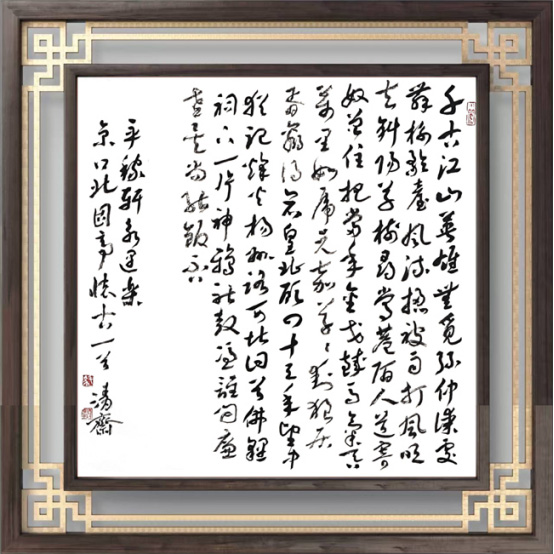 千古江山英雄無覓孫仲謀處
舞榭歌臺風流總被雨打風吹
去斜陽草樹尋常巷陌人道寄
奴曾住想當年金戈鐵馬氣吞
萬里如虎元嘉草草封狼居
胥贏得倉皇北顧四十三年望中
猶記烽火揚州路可堪回首佛貍
祠下一片神鴉社鼓憑誰問廉
老矣尚能飯否
辛稼軒永遇樂
京口北固亭懷古一首 齋